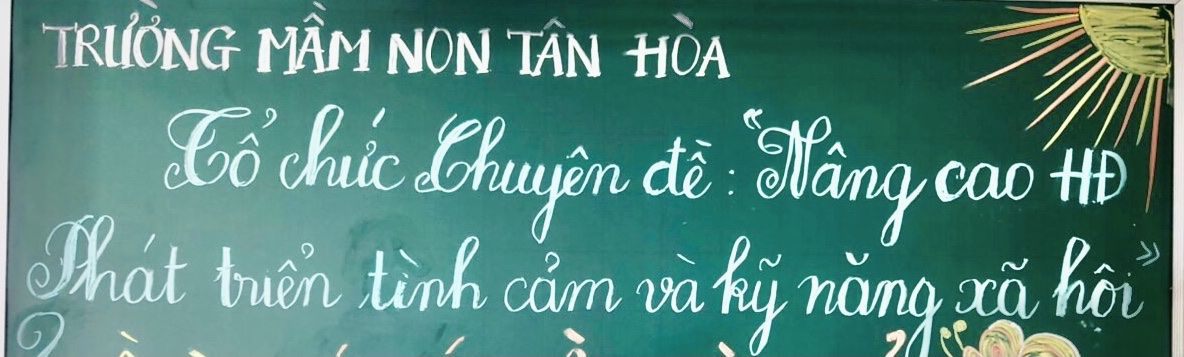 TRƯỜNG MẦM NON TÂN HÒA
Tổ chức Chuyên đề: "Nâng cao HĐ
Phát triển tình cảm và kỹ năng xã hôi"